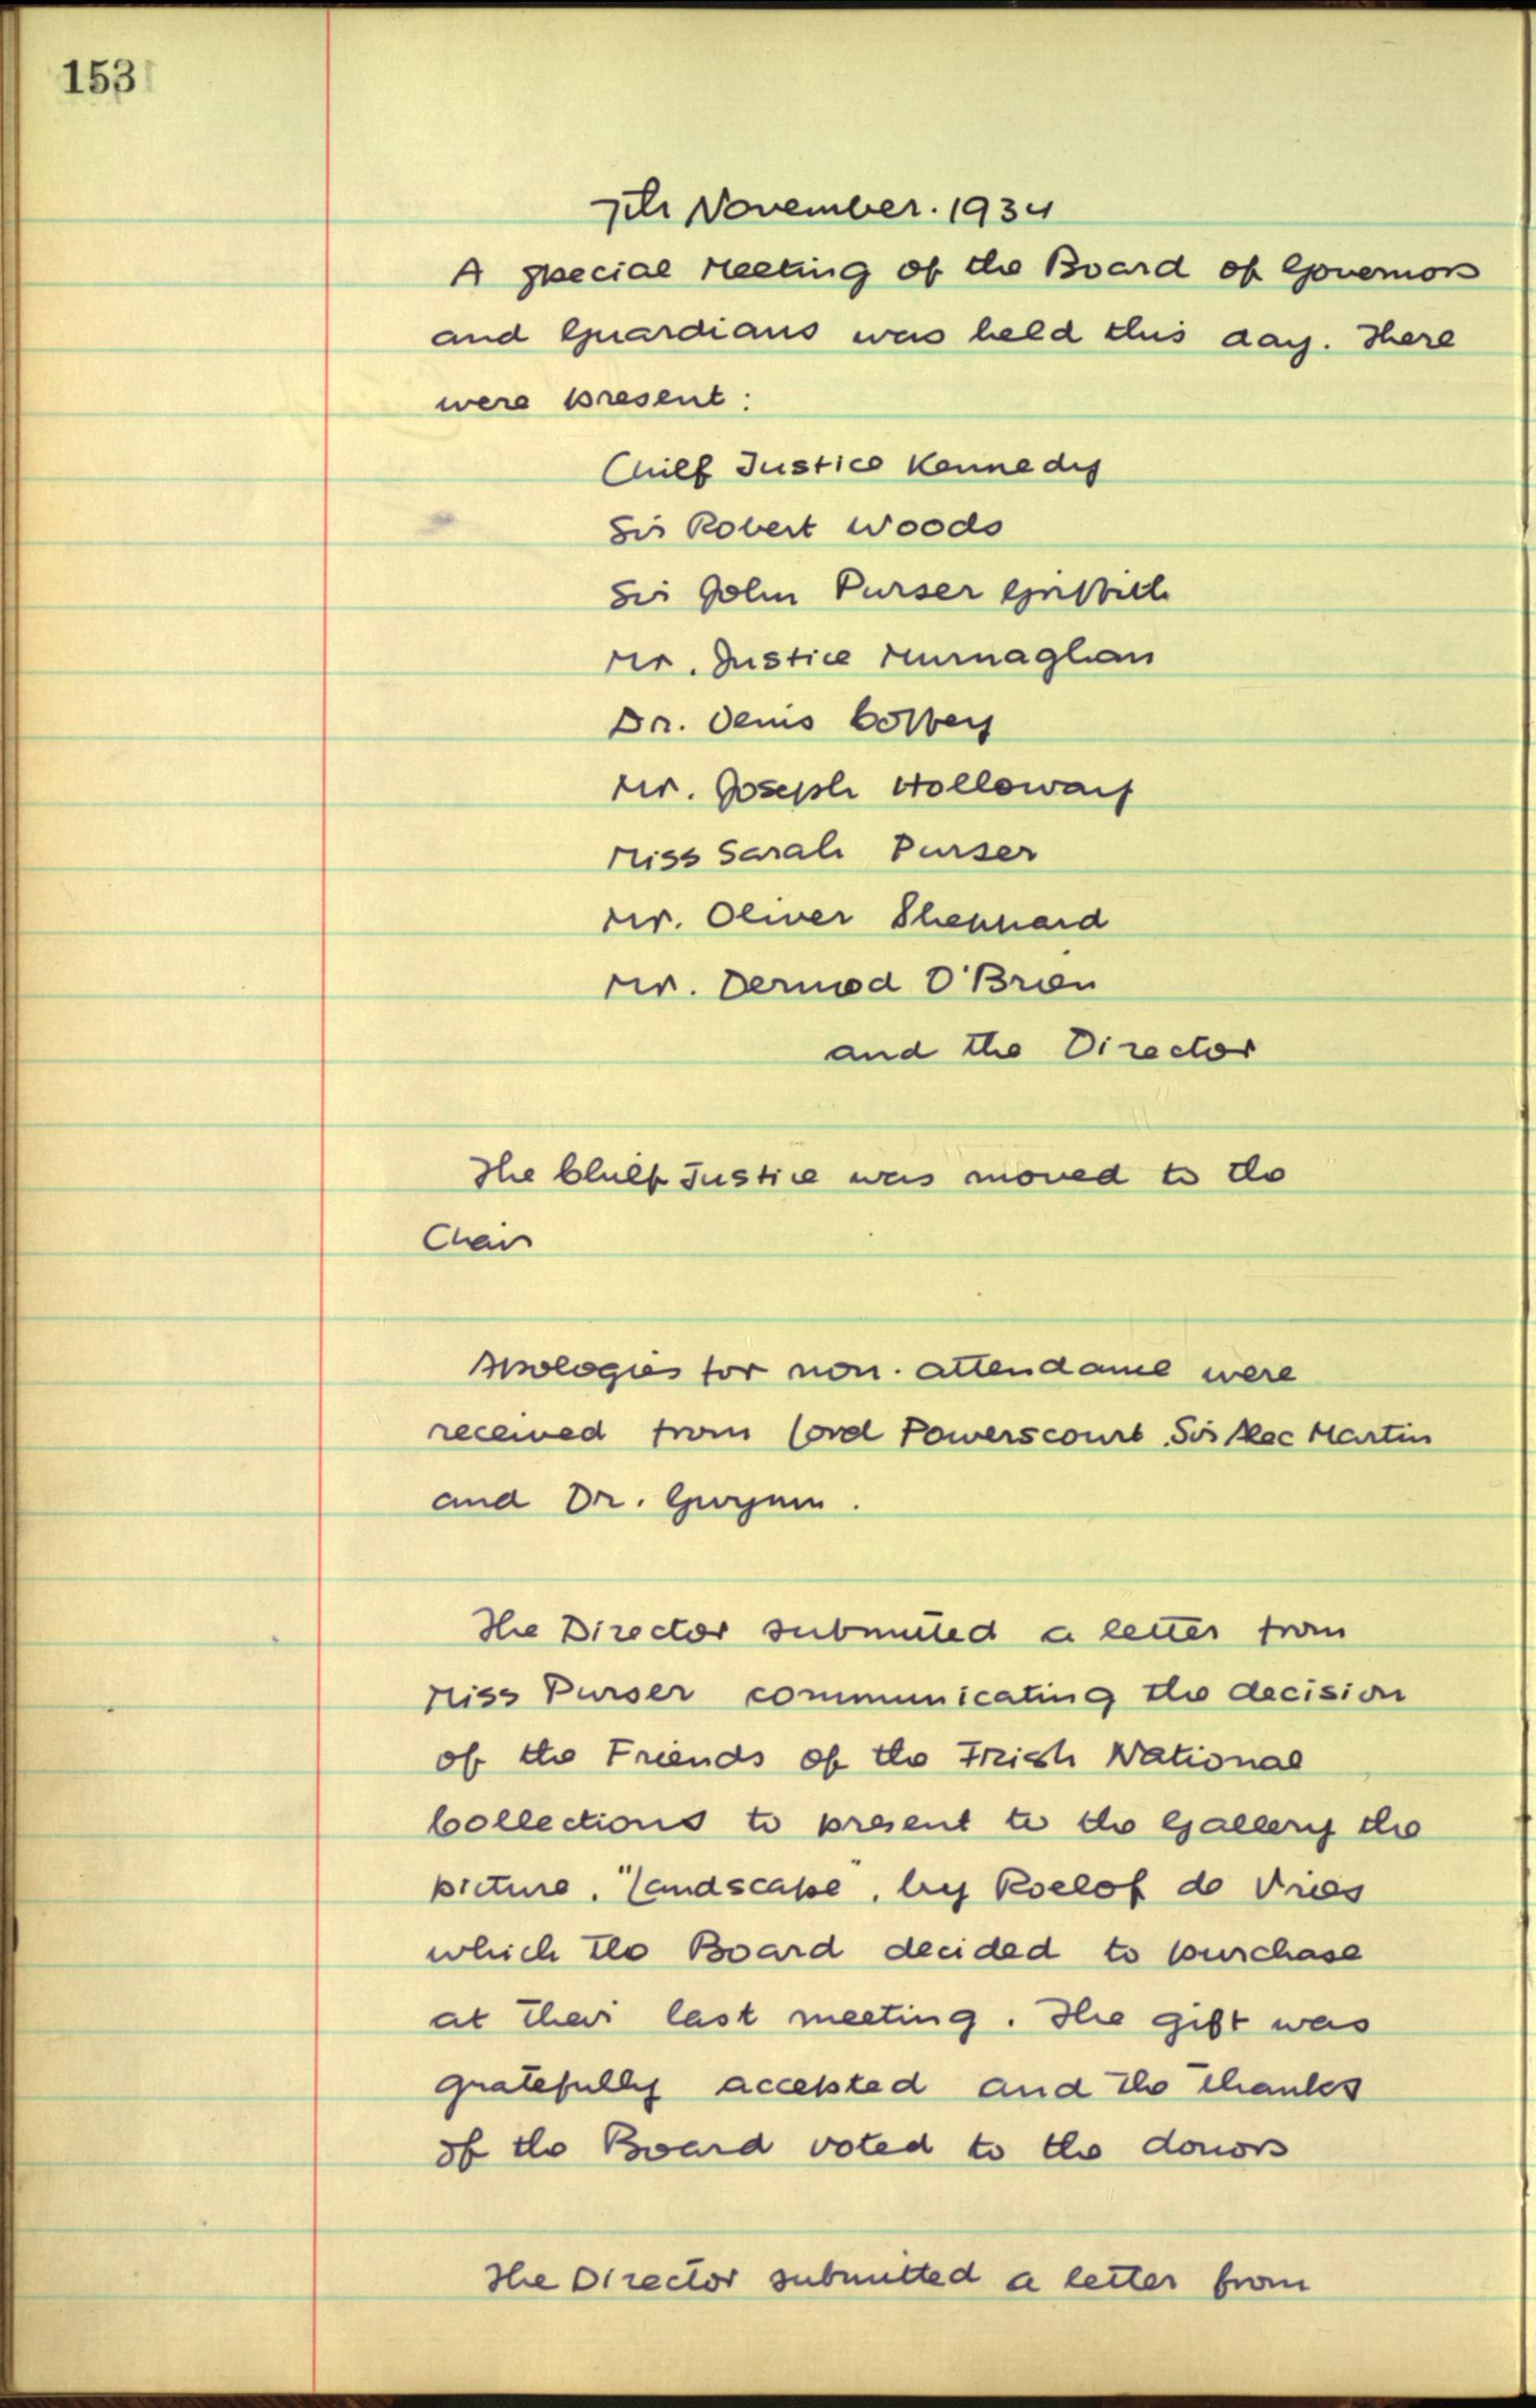 153
7th November. 1934
A special Meeting of the Board of Governors
and Guardians was held this day. There
were present:
Chief Justice Kennedy
Sir Robert Woods
Sir John Purser Griffith
Mr. Justice Murnaghan
Dr. Denis Coffey
Mr. Joseph Holloway
Miss Sarah Purser
Mr. Oliver Sheppard
Mr. Dermod O'Brien
and the Director
The Chief Justice was moved to the
Chair
Apologies for non-attendance were
received from Lord Powerscourt, Sir Alec Martin
and Dr. Gwynn.
The Director submitted a letter from
Miss Purser communicating the decision
of the Friends of the Irish National
Collections to present to the Gallery the
picture, "Landscape", by Roelof de Vries
which the Board decided to purchase
at their last meeting. The gift was
gratefully accepted and the thanks
of the Board voted to the donors
The Director submitted a letter from